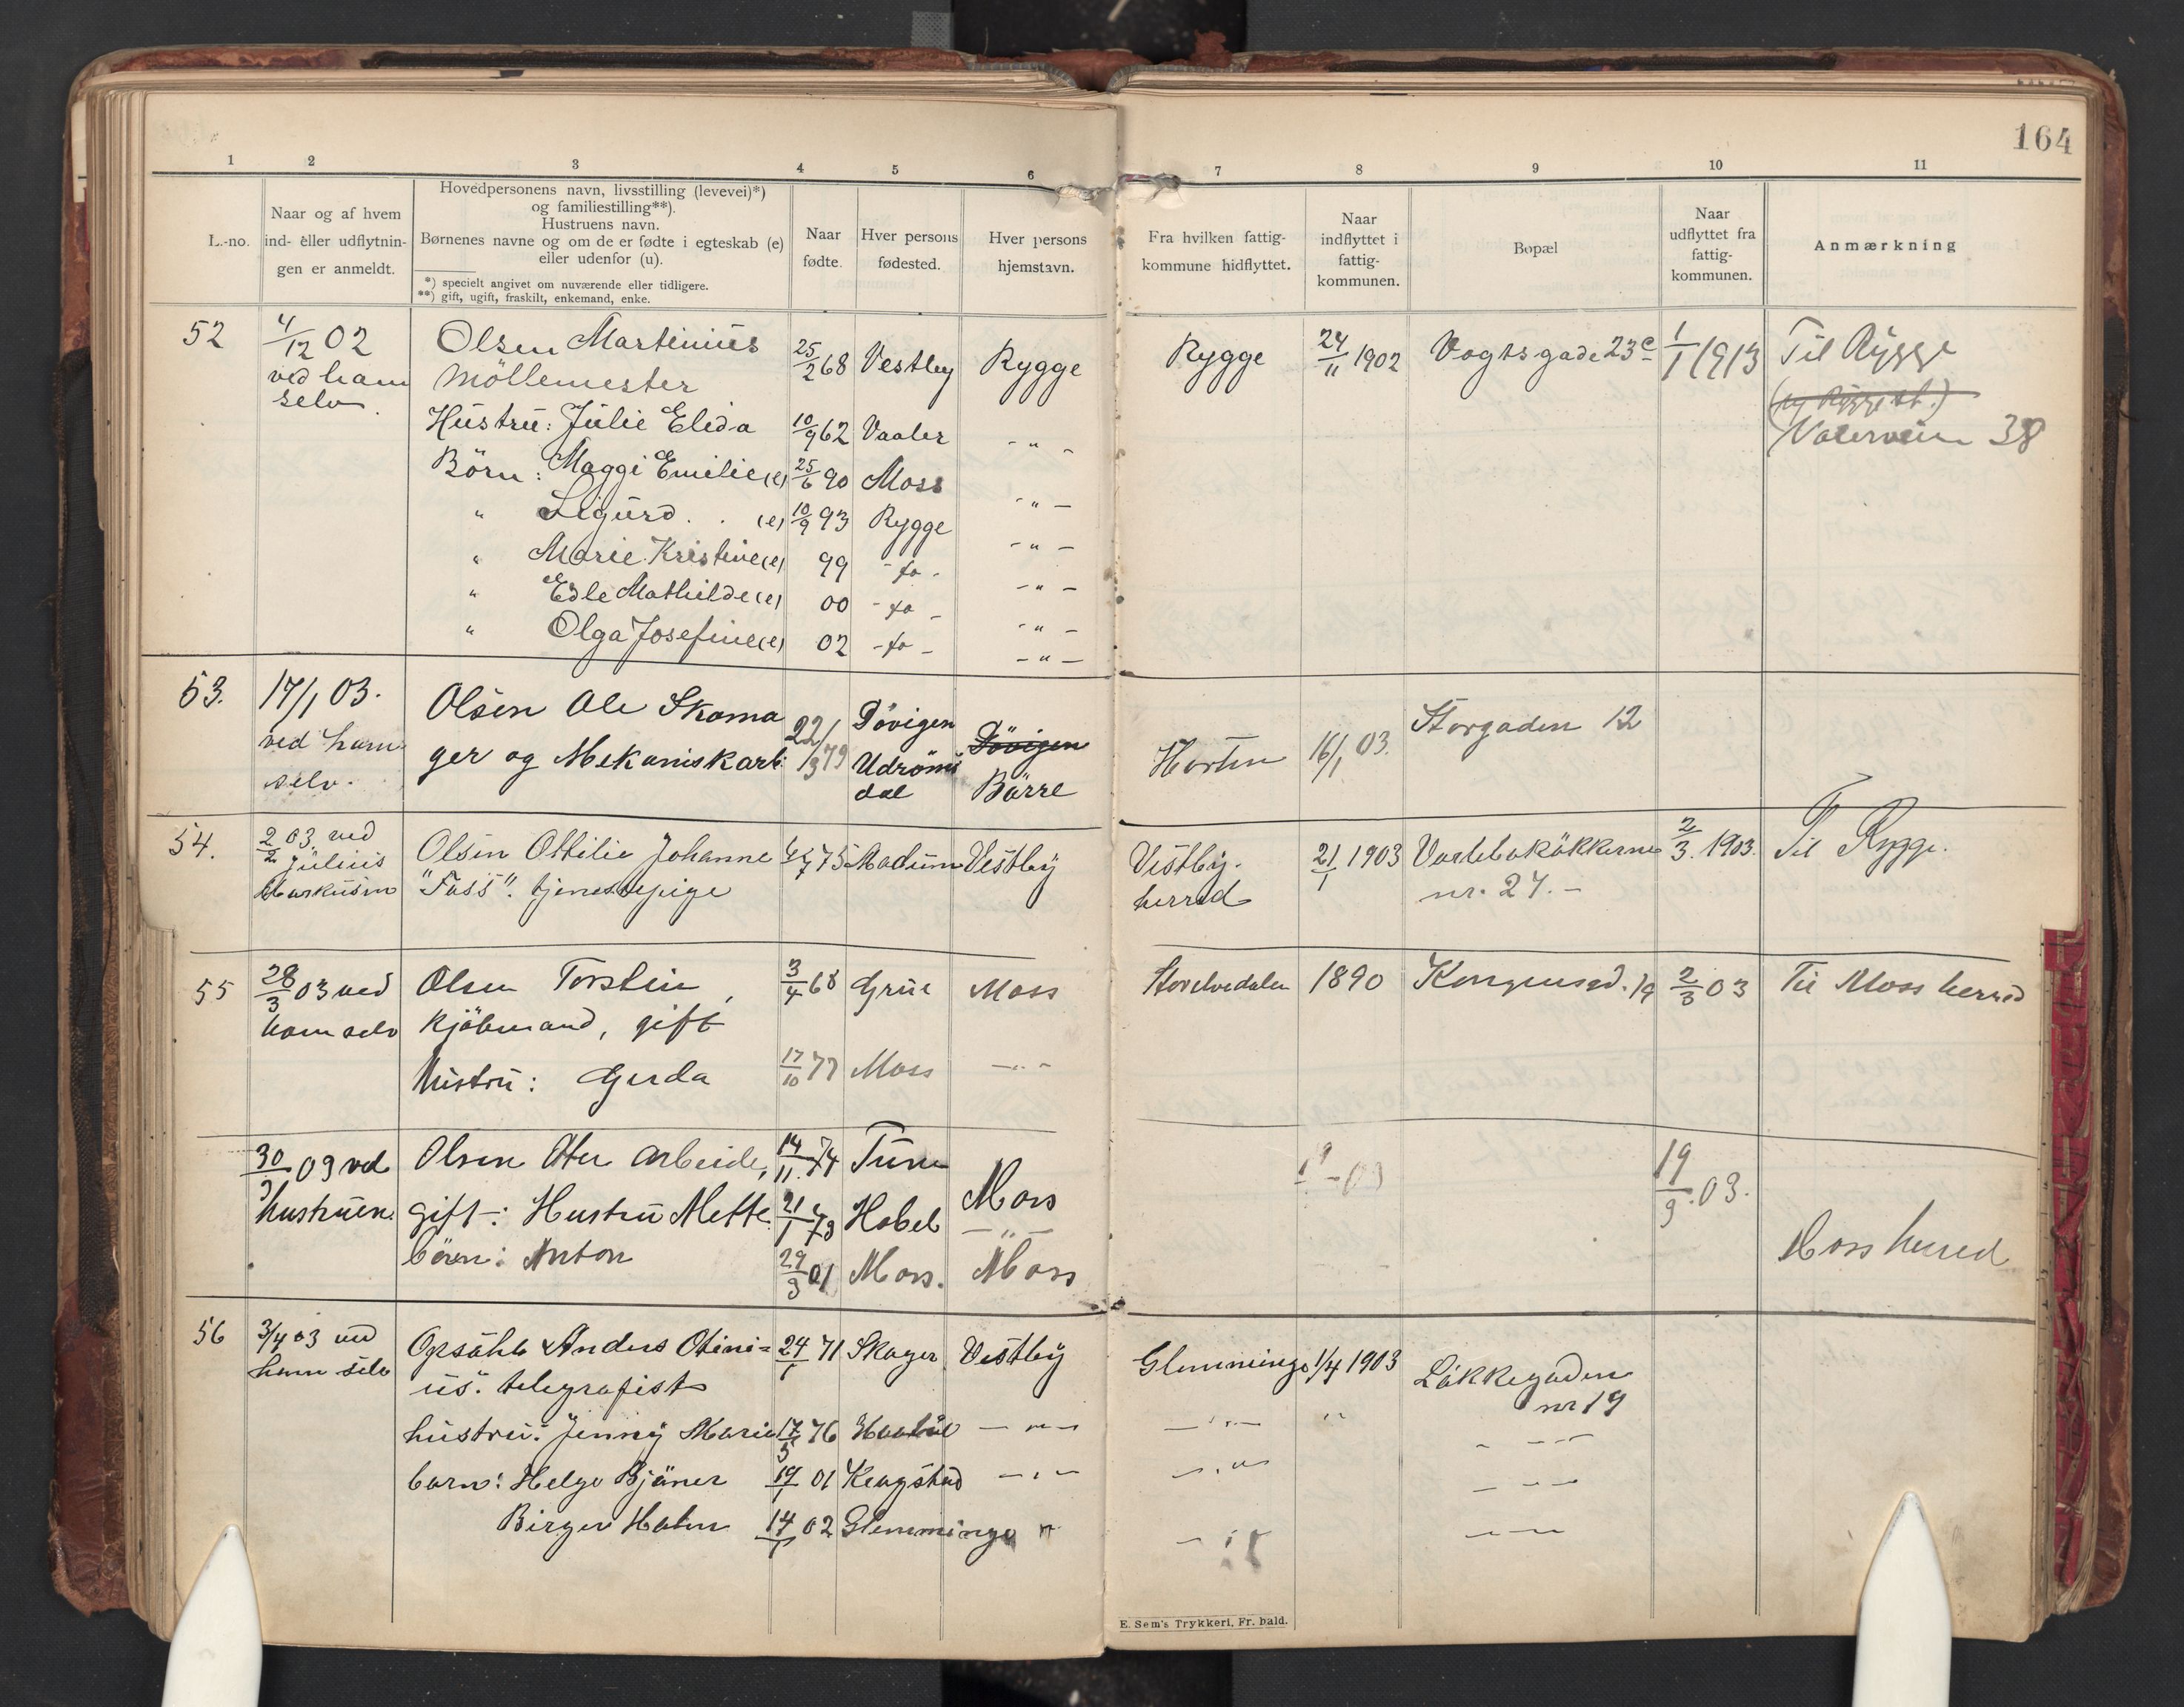 164
1 2 3 4 5 6 7 8 9 10 11
L.-no.
Naar og af hvem
ind- eller udflytnin-
gen er anmeldt.
Hovedpersonens navn, livsstilling (levevei)*)
og familiestilling**).
Hustruens navn.
Børnenes navne og om de er fødte i egteskab (e)
eller udenfor (u).
*) specielt angivet om nuværende eller tidligere.
**) gift, ugift, fraskilt, enkemand, enke.
Naar
fødte.
Hver persons
fødested.
Hver persons
hjemstavn.
Fra hvilken fattig-
kommune hidflyttet.
Naar
indflyttet i
fattig-
kommunen.
Bopæl
Naar
udflyttet fra
fattig-
kommunen.
Anmærkning
52 4/12 02 Olsen Martinius 25/2 68 Vestby Rygge Rygge 24/11 1902 Vogtsgade 23c 1/1 1913 Til Rygge
ved ham Möllemester
selv.
Hustru: Julie Elida 10/9 62 Vaaler - " - Valerveien 38
Börn: Maggi Emilie (e) 25/6 90 Moss - " -
" Sigurd . . (e) 10/9 93 Rygge - " -
" Marie Kristine (e) 99 - do - - " -
" Edle Mathilde (e) 00 - do - - " -
" Olga Josefine (e) 02 - do - - " -
53. 17/1 03. Olsen Ole Skoma 22/3 79 Dövigen Dövigen Horten 16/1 03. Storgaden 12
ved ham ger og Mekaniskarb: Udröms Börre
selv. dal
54. 2/2 03. ved Olsen Ottilie Johanne 4/7 75 Vestby Vestby- 21/1 1903 2/3. 1903. Til Rygge.
Julius "Foss". tjenestepige herred nr. 27. -
Markusen
55 28/3 03 ved Olsen Torstein, 3/4 68 Grue Moss Storelvedalen 1890 Kongensgd. 19 2/3 03 Til Moss herred
ham selv kjöbmand, gift
hustru: Gerda 17/10 77 Moss - " -
30/3 03 ved Olsen Otto arbeide, 14/11. 74 Tune Moss 19/3. 03.
hustruen. gift: Hustru Mette 21/1 73 Hobel - " - Moss herred
bören: Anton 29/3 01 Moss. Moss
56 3/4 03 ved Opsahl Anders Otini= 24/1 71 Skager Vestby Glemminge 1/4 1903 Lökkegaden
ham selv us. telegrafist nr 19
hustru: Jenny Marie 17/5 76 - " - - " - "
barn: Helge Bjäner 19/1 01 - " - - " -
Birger Holm 14/1 02 Glemminge "
E. Sem's Trykkeri, Fr.hald.